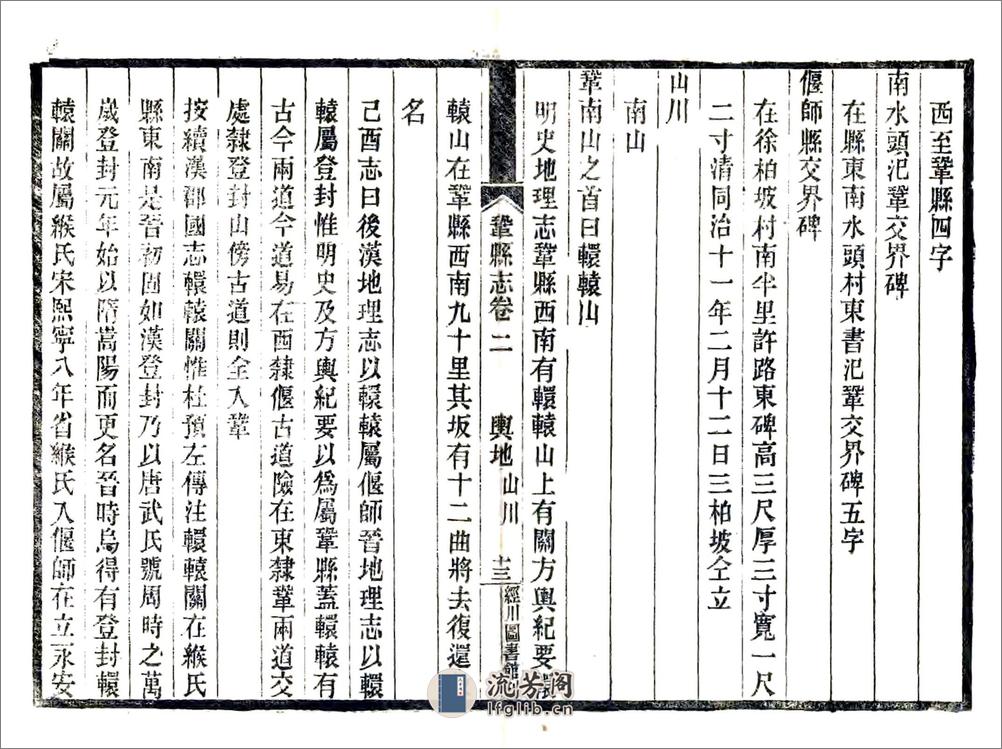 西至鞏縣四字
南水頭汜鞏交界碑
在縣東南水頭村東書汜鞏交界碑五字
偃師縣交界碑
在徐柏坡村南半里許路東碑高三尺厚三寸寬一尺
二寸清同治十一年二月十二日三柏坡仝立
山川
南山
鞏南山之首曰轘轅山
明史地理志鞏縣西南有轘轅山上有關方輿紀要轘
轅山在鞏縣西南九十里其坂有十二曲將去復還
鞏縣志卷二 輿地 山川 十三 經川圖書館
名
己酉志曰後漢地理志以轘轅屬偃師晉地理志以轘
轅屬登封惟明史及方輿紀要以爲屬鞏縣蓋轘轅有
古今兩道今道易在西隸偃古道險在東隸鞏兩道交
處隸登封山傍古道則全入鞏
按續漢郡國志轘轅關惟杜預左傳注轘轅關在緱氏
縣東南是晉初固如漢登封乃以唐武氏號周時之萬
歲登封元年始以隋嵩陽而更名晉時烏得有登封轘
轅關故屬緱氏宋熙寧八年省緱氏入偃師在立永安
流芳阁
lfglib.cn